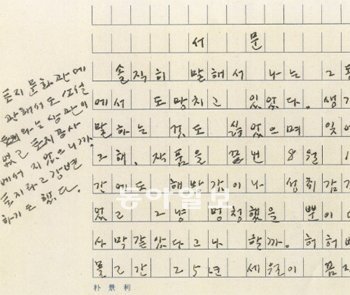 서 문
솔직히 말해서 나는 그
에서 도망치고 있었다. 생각
말하는 것도 싫었으며 잊어
그해, 작품을 끝낸 8월 1
간에도 해방감이나 성취감
었고 그냥 멍청했을 뿐이
사막 같았다고나 할까. 허허
몰고 간 25년 세월이 끔
토지문화관에
관해서도
나는 생각
없고 토지공사
에서 지었으니까.
토지라고 강변
하기도 했다.
동아일보
朴景利